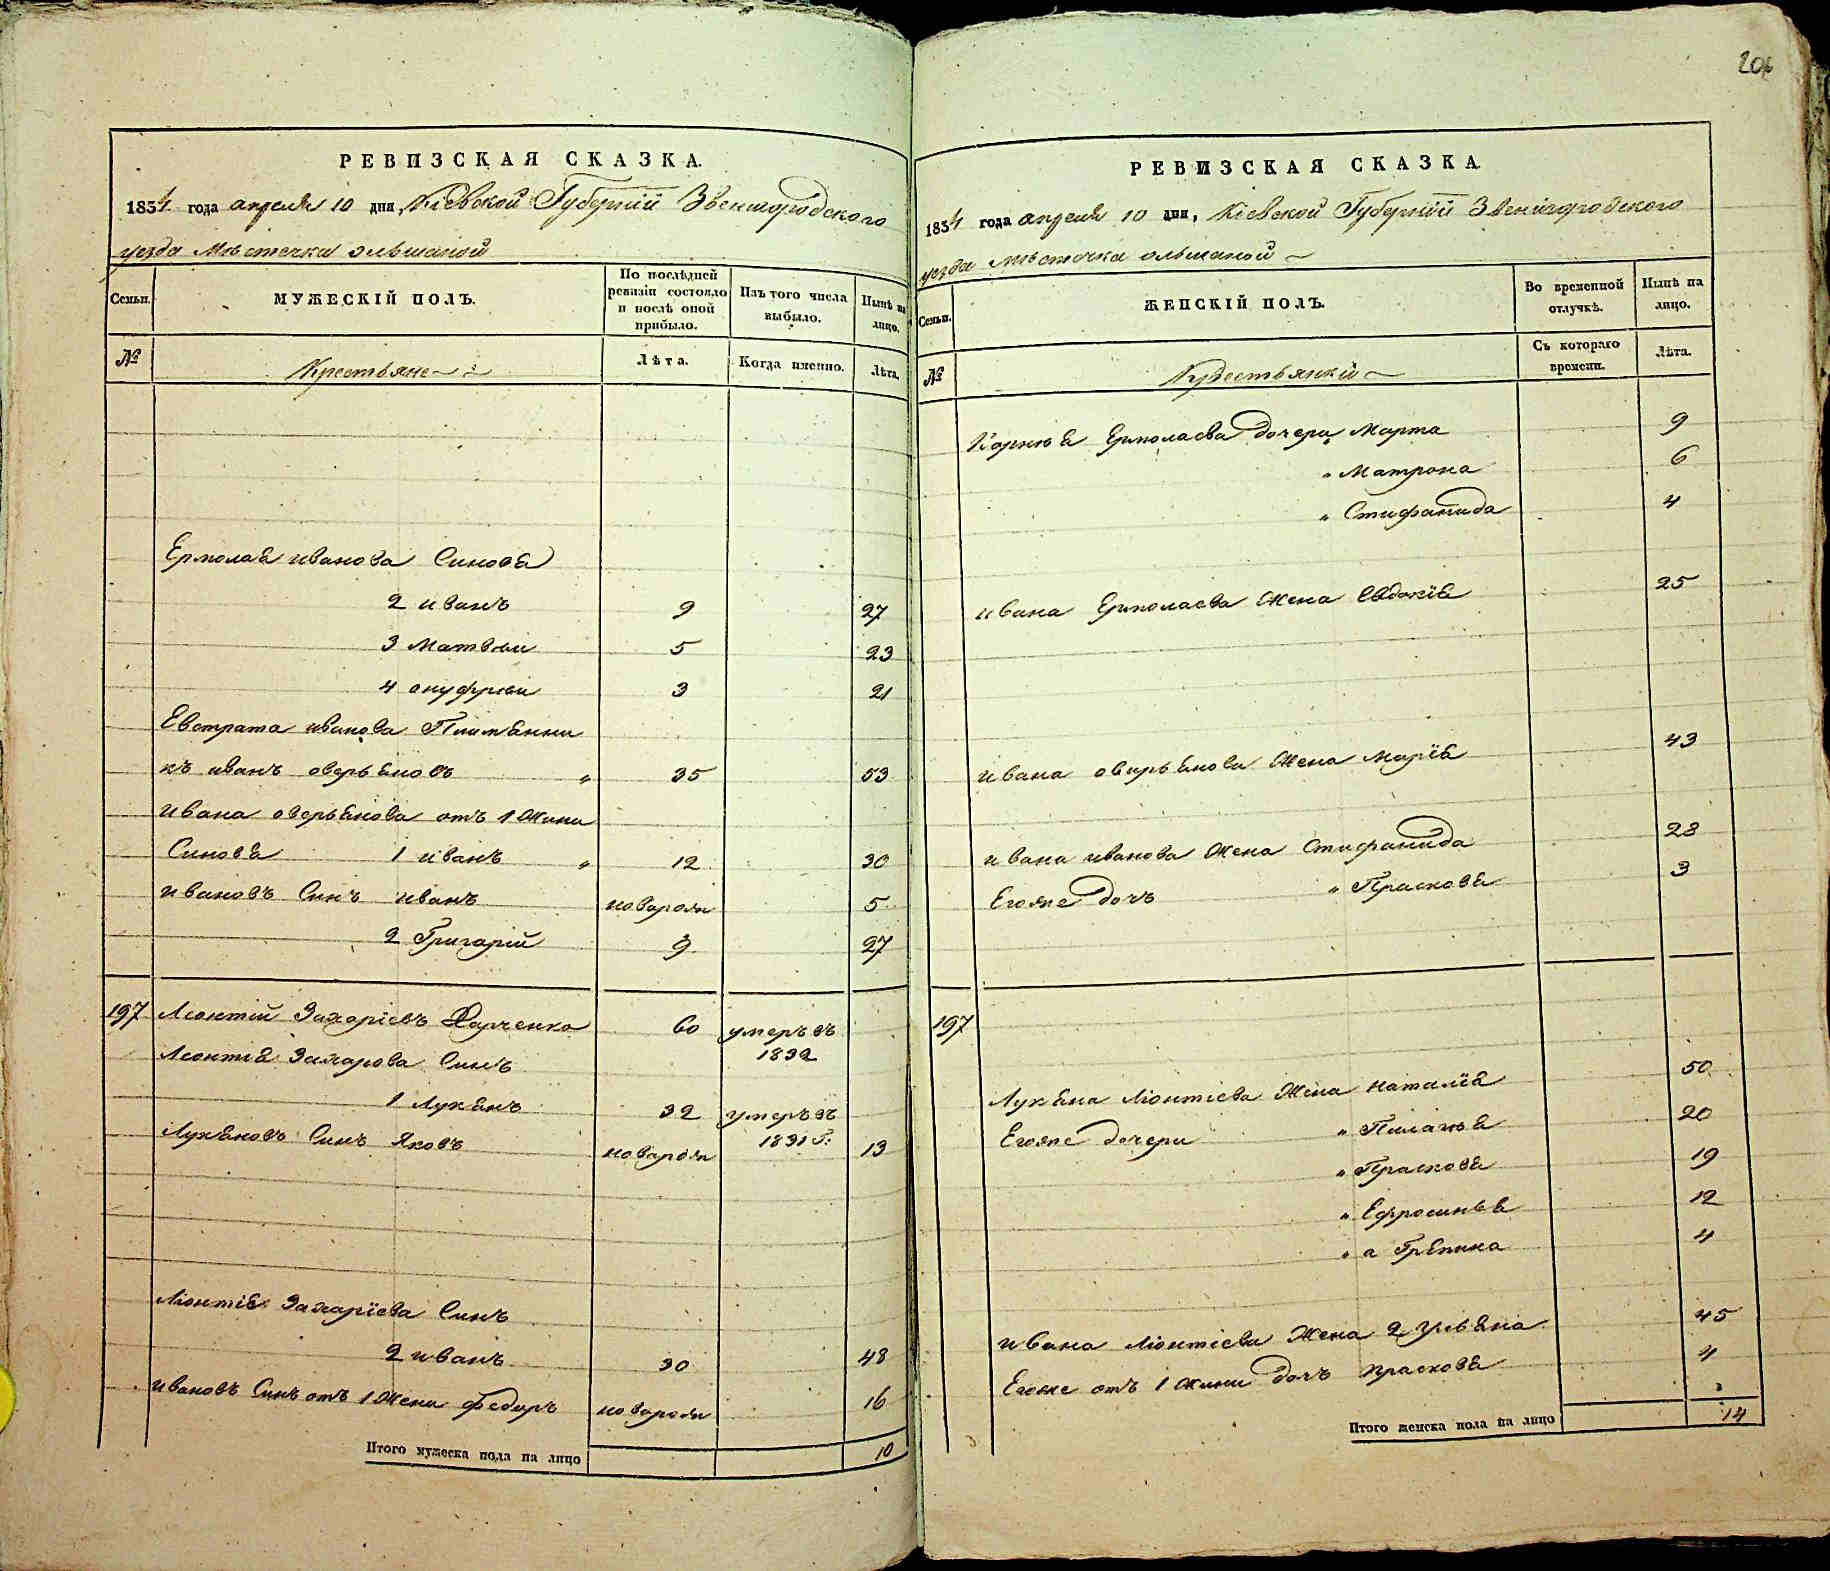 206
РЕВИЗСКАЯ СКАЗКА.
1834 года апреля 10 дня, Кіевской Губерніи Звенигородского
уезда Мѣстечка ольшаной
Семьи.
МУЖЕСКІЙ ПОЛЪ.
По послѣдней ревизіи состояло и послѣ оной прибыло.
Изъ того числа выбыло.
Нынѣ на лицо.
№
Крестьяне
Лѣта.
Когда именно.
Лѣта.
Ермолая иванова Синовя
2 иванъ 9 27
3 Матвѣи 5 23
4 онуфрѣи 3 21
Евстрата иванова Плимянни
къ иванъ оверьяновъ " 35 53
ивана оверьянова отъ 1 Жини
Синовя 1 иванъ " 12 30
ивановъ Синъ иванъ новорож 5
2 Григарій 9 27
197 Леонтій Захаріевъ Харченко 60 умеръ въ
1832
Леонтія Захарова Синъ
1 Лукянъ 32 умеръ въ
1831 г:
Лукяновъ Синъ Яковъ новорож 13
Ліонтія Захаріева Синъ
2 иванъ 30 48
ивановъ Синъ отъ 1 Жени федиръ новорож 16
Итого мужеска пола на лицо 10
РЕВИЗСКАЯ СКАЗКА
1834 года апреля 10 дня, Кіевской Губерніи Звенигородского
уезда мѣстечка ольшаной
Семьи.
ЖЕНСКІЙ ПОЛЪ.
Во временной отлучкѣ.
Нынѣ на лицо.
№
Крестьянкій
Съ котораго времени.
Лѣта.
Корнѣя Ермолаева дочери Марта 9
" Матрона 6
" Стифанида 4
ивана Ермолаева Жена Евдокія 25
ивана овирьянова Жена Марія 43
ивана иванова Жена Стифанида 28
Егоже дочъ " Прасковя 3
197
Лукяна Ліонтіева Жена наталія 50
Егоже дочери " Пилагѣя 20
" Прасковя 19
" Ефросинья 12
" а Грѣпина 4
ивана Ліонтіева Жена 2 Ульяна 45
Егоже отъ 1 Жини дочъ Прасковя 4
Итого женска пола на лицо 14